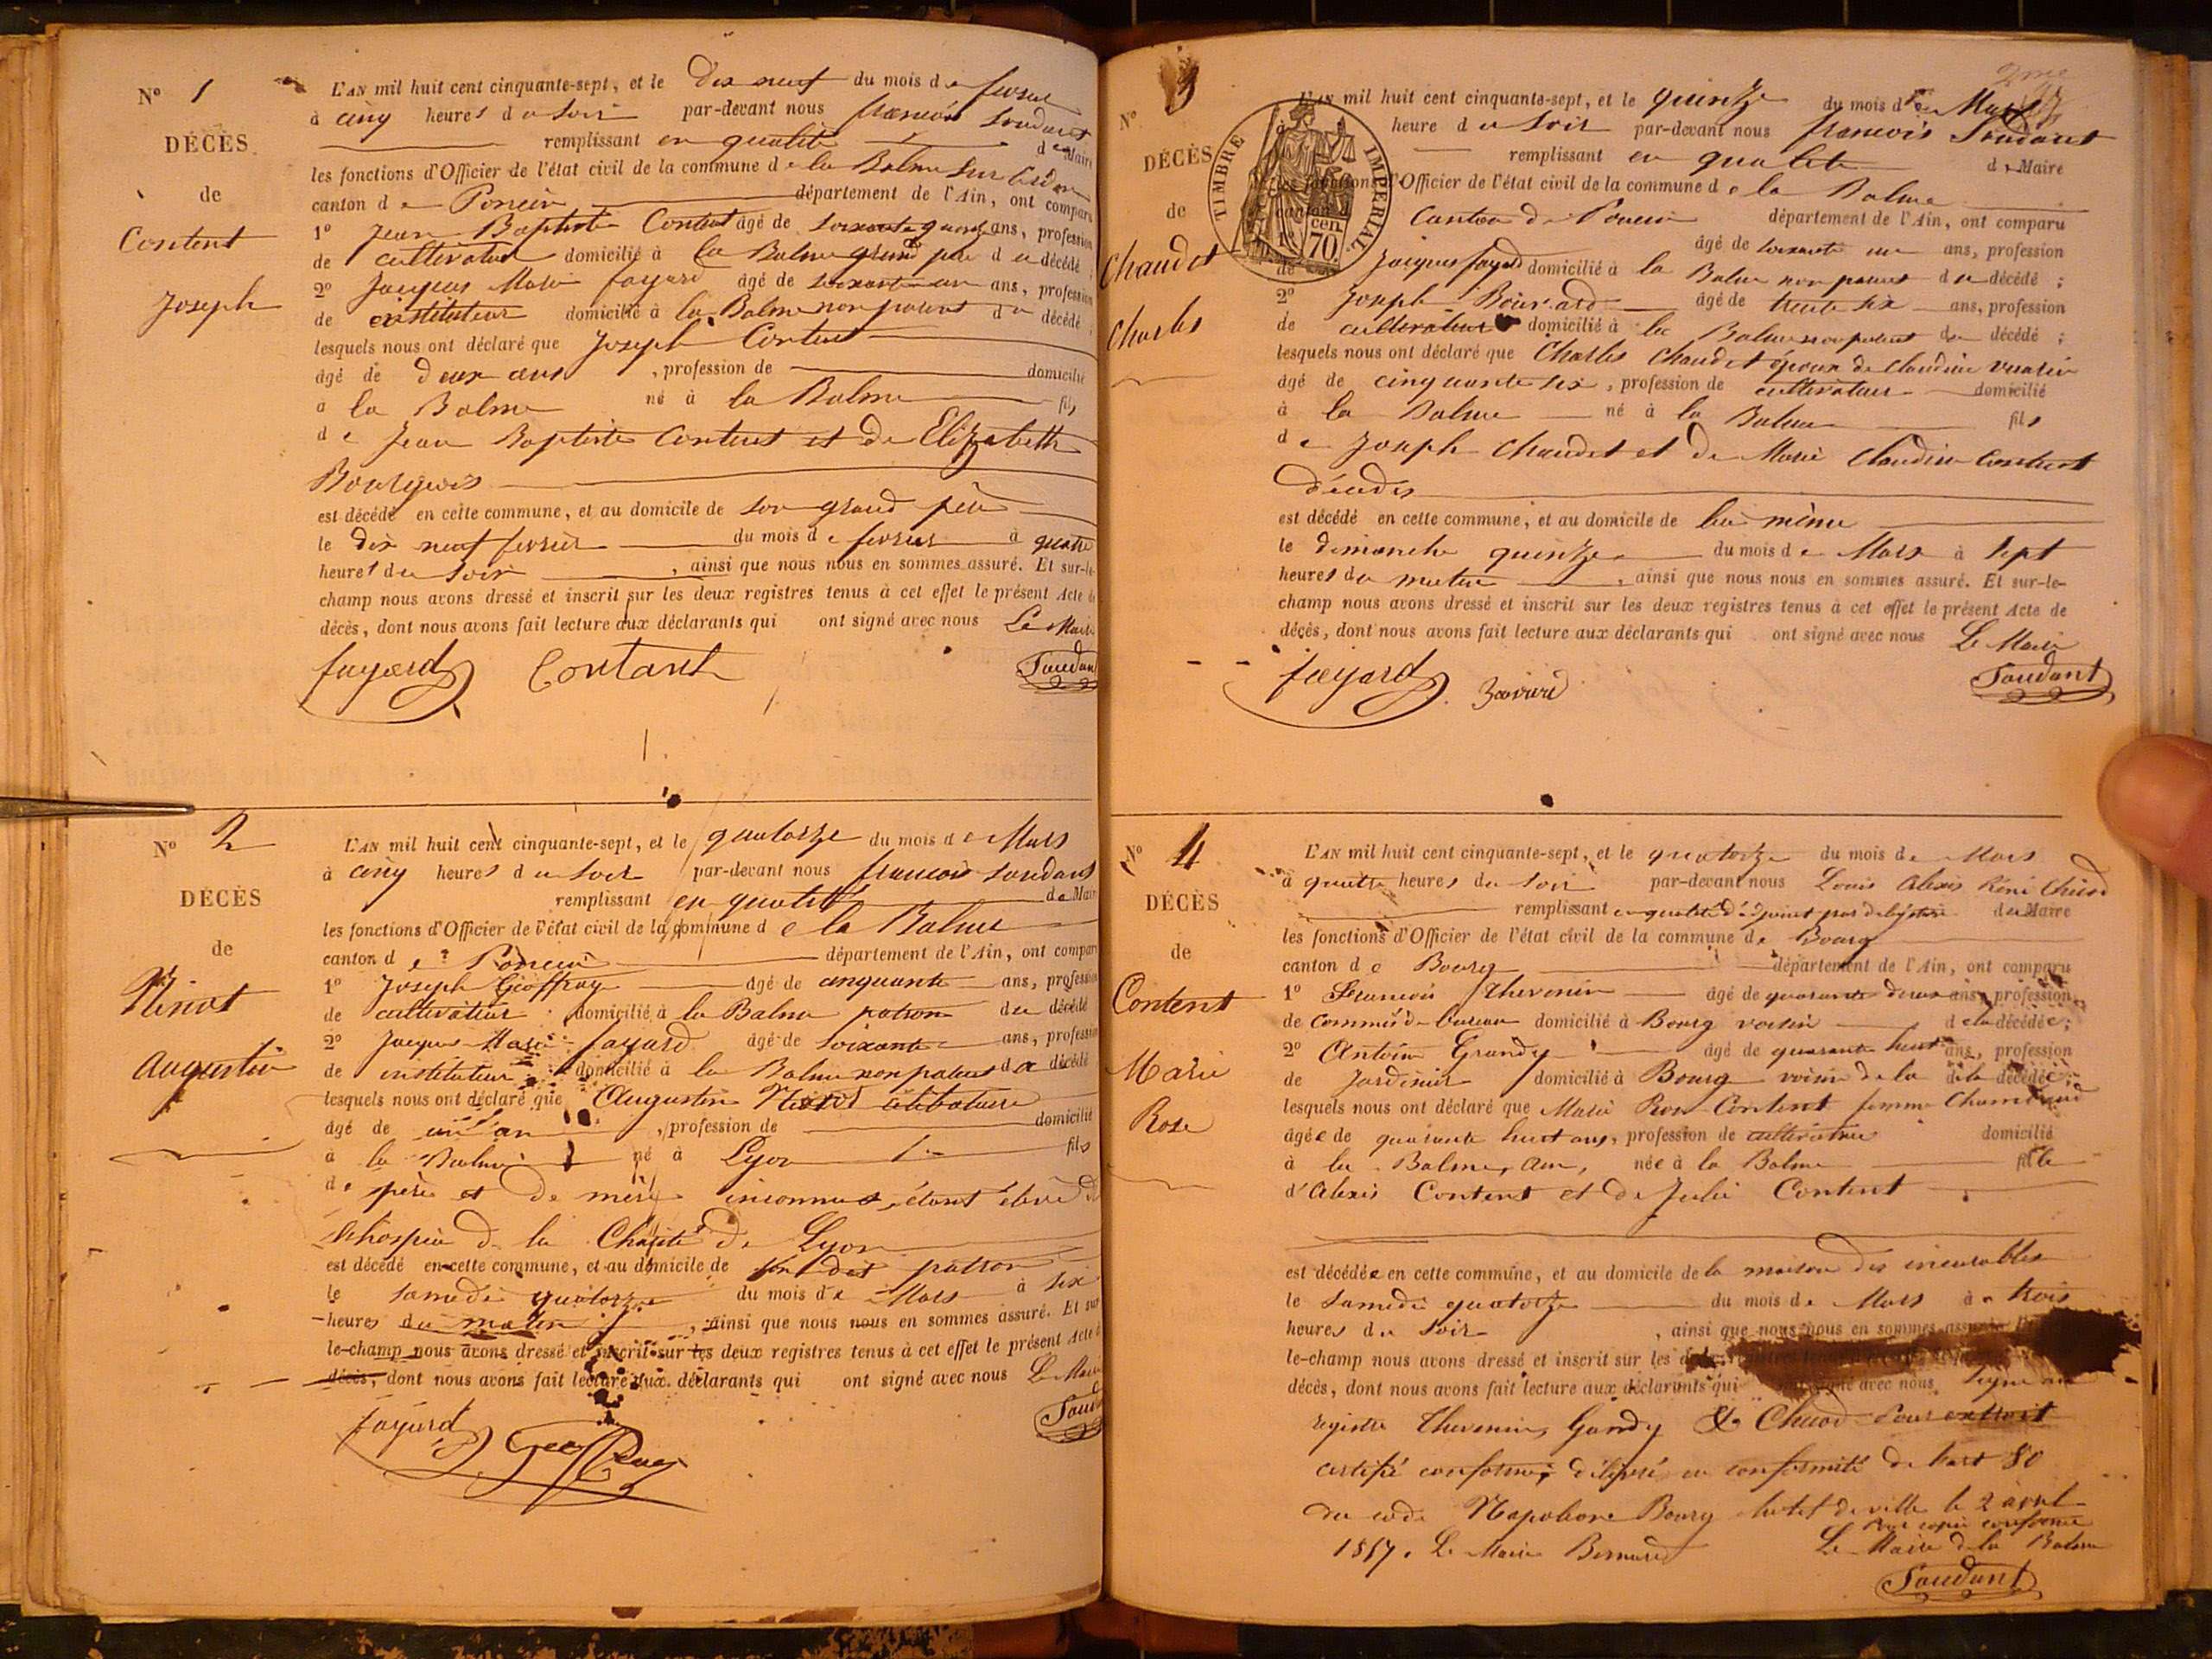 N° 1
DÉCÈS
de
Content
Joseph
L'AN mil huit cent cinquante-sept, et le dix neuf du mois de fevrier
à cinq heures du soir par-devant nous francois Soudant
remplissant en qualité de Maire
les fonctions d'Officier de l'état civil de la commune de la Balme sur Cerdon
canton de Poncin département de l'Ain, ont comparu
1° Jean Baptiste Content âgé de soixante quatorze ans, profession
de cultivateur domicilié à la Balme grand père du décédé
2° Jacques Marie fayard âgé de soixante un ans, profession
de instituteur domicilié à la Balme non parent du décédé
lesquels nous ont déclaré que Joseph Content
âgé de deux ans, profession de domicilié
à la Balme né à la Balme fils
de Jean Baptiste Content et de Elizabeth
Bourgeois
est décédé en cette commune, et au domicile de son grand père
le dix neuf fevrier du mois de fevrier à quatre
heures du soir, ainsi que nous nous en sommes assuré. Et sur-le-
champ nous avons dressé et inscrit sur les deux registres tenus à cet effet le présent Acte de
décès, dont nous avons fait lecture aux déclarants qui ont signé avec nous Le Maire
fayard Contant Soudant
N° 2
DÉCÈS
de
Ninot
Augustin
L'AN mil huit cent cinquante-sept, et le quatorze du mois de Mars
à cinq heures du soir par-devant nous francois Soudant
remplissant en qualité de Maire
les fonctions d'Officier de l'état civil de la commune de la Balme
canton de Poncin département de l'Ain, ont comparu
1° Joseph Géoffray âgé de cinquante ans, profession
de cultivateur domicilié à la Balme patron du décédé
2° Jacques Marie fayard âgé de soixante ans, profession
de instituteur domicilié à la Balme non parent du décédé
lesquels nous ont déclaré que Augustin Ninot célibataire
âgé de un an, profession de domicilié
à la Balme né à Lyon fils
de père et de mère inconnus, étant élève de
l'hospice de la Charité de Lyon
est décédé en cette commune, et au domicile de son dit patron
le samedi quatorze du mois de Mars à six
heures du matin, ainsi que nous nous en sommes assuré. Et sur
le-champ nous avons dressé et inscrit sur les deux registres tenus à cet effet le présent Acte de
décès, dont nous avons fait lecture aux déclarants qui ont signé avec nous Le Maire
fayard Geoffray Soudant
N° 3
DÉCÈS
de
Chaudet
Charles
TIMBRE IMPÉRIAL
70 cen
L'AN mil huit cent cinquante-sept, et le quinze du mois de Mars
heure du soir par-devant nous francois Soudant
remplissant en qualité de Maire
les fonctions d'Officier de l'état civil de la commune de la Balme
canton de Poncin département de l'Ain, ont comparu
âgé de soixante un ans, profession
de Jacques fayard domicilié à la Balme non parent du décédé ;
2° Joseph Bouvard âgé de trente six ans, profession
de cultivateur domicilié à la Balme non parent du décédé ;
lesquels nous ont déclaré que Charles Chaudet époux de Claudine vuarin
âgé de cinquante six, profession de cultivateur domicilié
à la Balme né à la Balme fils
de Joseph Chaudet et de Marie Claudine Content
décédés
est décédé en cette commune, et au domicile de lui même
le dimanche quinze du mois de Mars à sept
heures du matin, ainsi que nous nous en sommes assuré. Et sur-le-
champ nous avons dressé et inscrit sur les deux registres tenus à cet effet le présent Acte de
décès, dont nous avons fait lecture aux déclarants qui ont signé avec nous Le Maire
fayard Bouvard Soudant
N° 4
DÉCÈS
de
Content
Marie
Rose
L'AN mil huit cent cinquante-sept, et le quatorze du mois de Mars
à quatre heures du soir par-devant nous Louis Alexis Réné Chicod
remplissant en qualité d'adjoint par délégation du Maire
les fonctions d'Officier de l'état civil de la commune de Bourg
canton de Bourg département de l'Ain, ont comparu
1° Francois Thevenin âgé de quarante deux ans, profession
de commis de bureau domicilié à Bourg voisin de la décédée ;
2° Antoine Grandy âgé de quarante huit ans, profession
de Jardinier domicilié à Bourg voisin de la décédée ;
lesquels nous ont déclaré que Marie Rose Content femme
âgée de quarante huit ans, profession de cultivatrice domicilié
à la Balme, ain, née à la Balme fille
d'Alexis Content et de Julie Content
est décédée en cette commune, et au domicile de la maison des incurables
le samedi quatorze du mois de Mars à trois
heures du soir, ainsi que nous nous en sommes assuré
le-champ nous avons dressé et inscrit sur les
décès, dont nous avons fait lecture aux déclarants qui ont signé avec nous. Signé au
registre Thevenin, Gandy & Chicod Pour extrait
certifié conforme, délivré en conformité de l'art 80
du code Napoléon Bourg hotel de ville le 2 avril
1857. Le Maire Bernard
Pour copie conforme
Le Maire de la Balme
Soudant